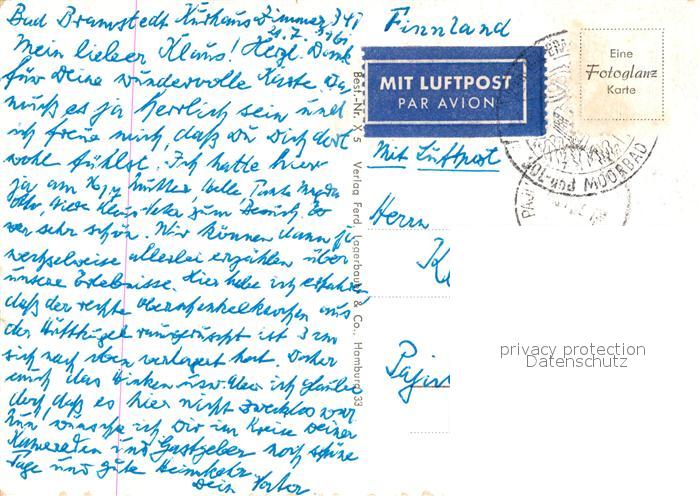 Bad Bramstedt Kurhaus Zimmer 341
Mein lieber Klaus! Herzl. Dank
für Deine wundervolle Karte. Da
muß es ja herrlich sein und
ich freue mich, daß Du Dich dort
wohl fühlst. Ich hatte hier
ja am Mutter, Tante
zum Besuch. Es
war sehr schön. Wir können dann ja
wechselweise allerlei erzählen über
unsere Erlebnisse. Hier habe ich erfahren,
daß der rechte Oberschenkelknochen aus
der Hüftkugel rausgerutscht ist 3 cm
sich nach oben verlagert hat. Daher
auch das Hinken usw. Aber ich glaube
doch, daß es hier nicht zwecklos war.
Nun wünsche ich Dir im Kreise Deiner
Kameraden und Gastgeber noch schöne
Tage und gute Heimkehr
Dein Vater
Best.-Nr. X 5 Verlag Ferd. Lagerbauer & Co., Hamburg 33
Finnland
MIT LUFTPOST
PAR AVION
Eine
Fotoglanz
Karte
SOL- und MOORBAD
Mit Luftpost
Herrn
privacy protection
Datenschutz